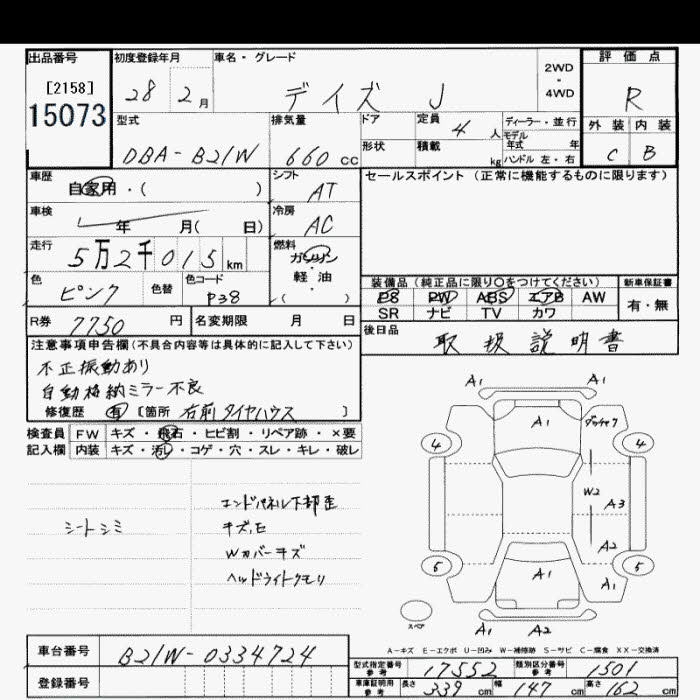 出品番号 初度登録年月 車名・グレード 評価点
[2158] 28 2月 デイズ J 2WD・4WD R
15073 型式 排気量 ドア 定員 4人 ディーラー・並行 外装 内装
モデル年式 年
DBA-B21W 660cc 形状 積載 kg ハンドル 左・右 C B
車歴 シフト セールスポイント (正常に機能するものに限ります)
自家用・( ) AT
車検 冷房
年 月( 日) AC
走行 燃料
5万2千015km ガソリン・軽油・( )
色 色替 色コード 装備品 (純正品に限り〇をつけてください) 新車保証書
ピンク P38 PS PW ABS エアB AW 有・無
SR ナビ TV カワ
R券 7750円 名変期限 月 日 後日品
取扱説明書
注意事項申告欄(不具合内容等は具体的に記入して下さい)
不正振動あり
自動格納ミラー不良
修復歴 有 [箇所 右前タイヤハウス ]
検査員 FW キズ・飛石・ヒビ割・リペア跡・×要
記入欄 内装 キズ・汚レ・コゲ・穴・スレ・キレ・破レ
エンドパネル下部歪
シートシミ キズ,E
Wカバーキズ
ヘッドライトクモリ
A1 A1
A1
4 4
W2
A3
A2
5 A1 A1 5
スペア A1 A2
A-キズ E-エクボ U-凹み W-補修跡 S-サビ C-腐食 XX-交換済
車台番号 B21W-0334724 型式指定番号 参考 17552 類別区分番号 参考 1501
登録番号 車庫証明用 参考 長さ 339cm 幅 147cm 高さ 162cm